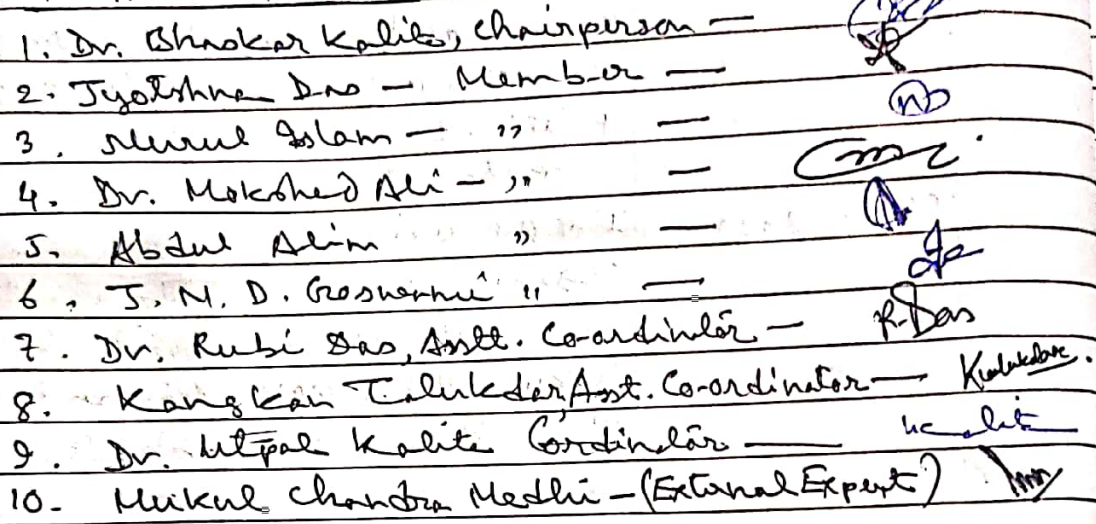 1. Dr. Bhaskar Kalita, Chairperson —
2. Jyotshna Das — Member —
3. Nurul Islam — ,, —
4. Dr. Mokshed Ali — ,, —
5. Abdul Alim ,, —
6. J. N. D. Goswami ,, —
7. Dr. Rubi Das, Asstt. Co-ordinator — R. Das
8. Kangkan Talukdar, Asst. Co-ordinator — Ktalukdar.
9. Dr. Utpal Kalita Cordinator —
10. Mukul Chandra Medhi — (External Expert)